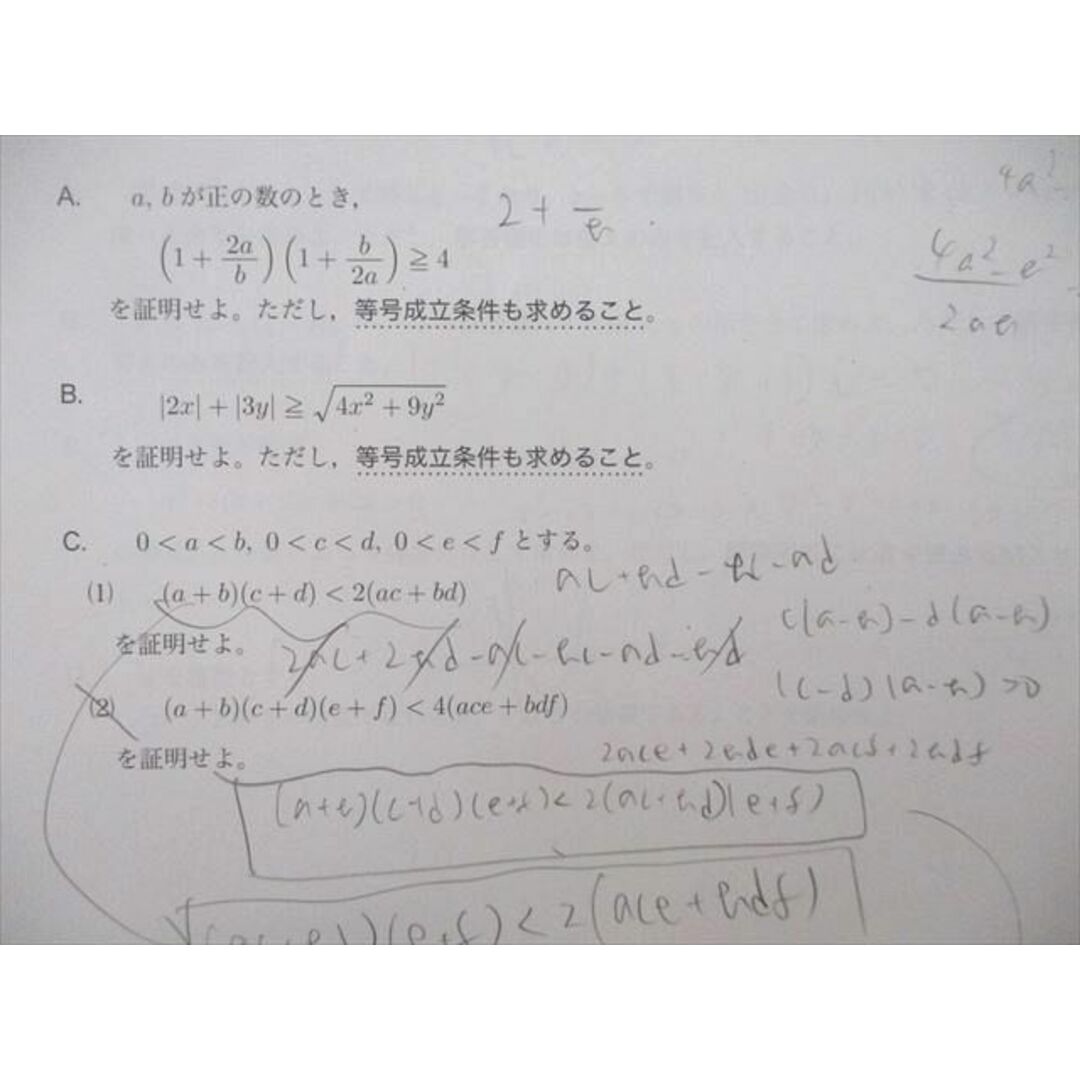 A. a, b が正の数のとき,
(1 + 2a/b)(1 + b/2a) ≧ 4
を証明せよ。ただし, 等号成立条件も求めること。
B. |2x| + |3y| ≧ √(4x² + 9y²)
を証明せよ。ただし, 等号成立条件も求めること。
C. 0 < a < b, 0 < c < d, 0 < e < f とする。
(1) (a + b)(c + d) < 2(ac + bd)
を証明せよ。
(2) (a + b)(c + d)(e + f) < 4(ace + bdf)
を証明せよ。
4a²
4a² - b²
2ab
ac + bd - bc - ad
c(a-b) - d(a-b)
(c-d)(a-b) > 0
2ac + 2bd - ac - bc - ad - bd
2ace + 2bde + 2acf + 2bdf
(a+b)(c+d)(e+f) < 2(ac+bd)(e+f)
(ac+bd)(e+f) < 2(ace + bdf)